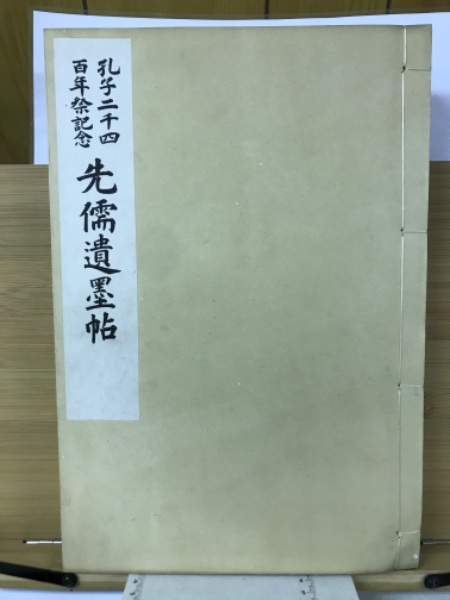 孔子二千四
百年祭記念
先儒遺墨帖